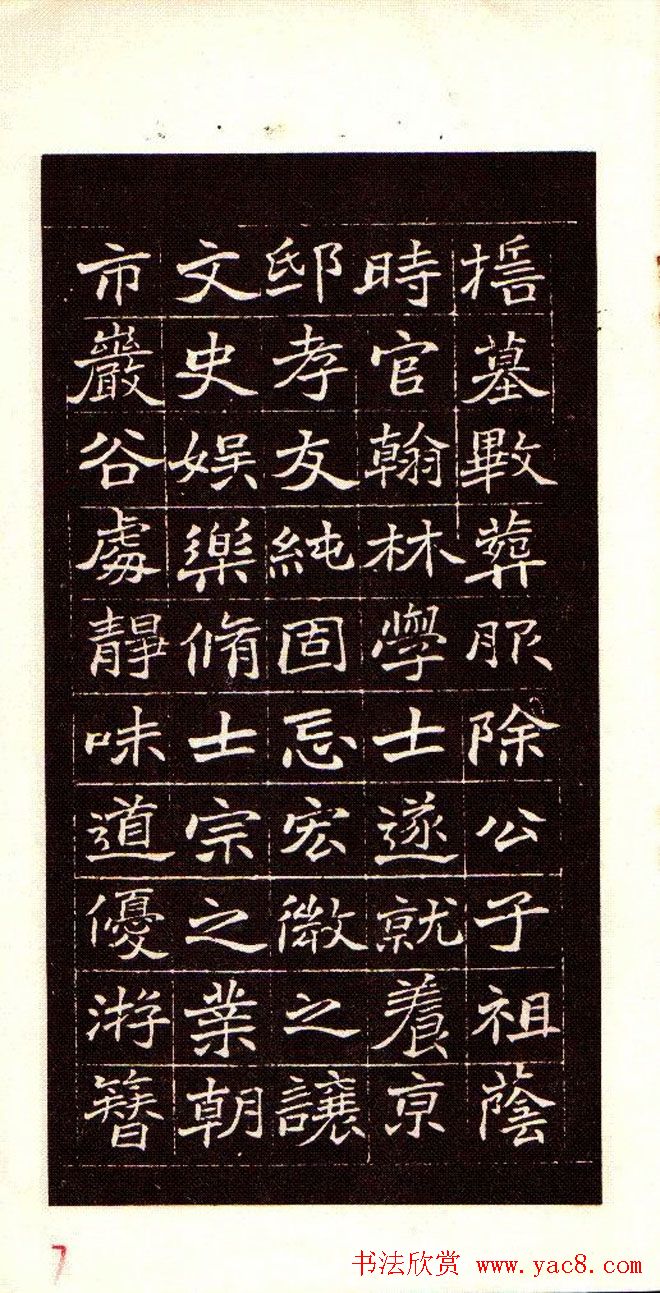 墓畢葬服除公子祖蔭
時官翰林學士遂就養京
邸孝友純固忘宏微之讓
文史娛樂脩士宗之業朝
市巖谷處靜味道優游簪
7
书法欣赏 www.yac8.com